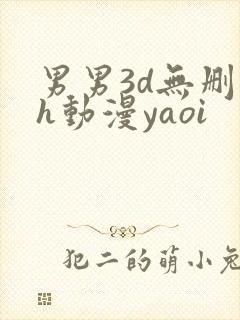 男男3d無删
h動漫yaoi
犯二的萌小兔